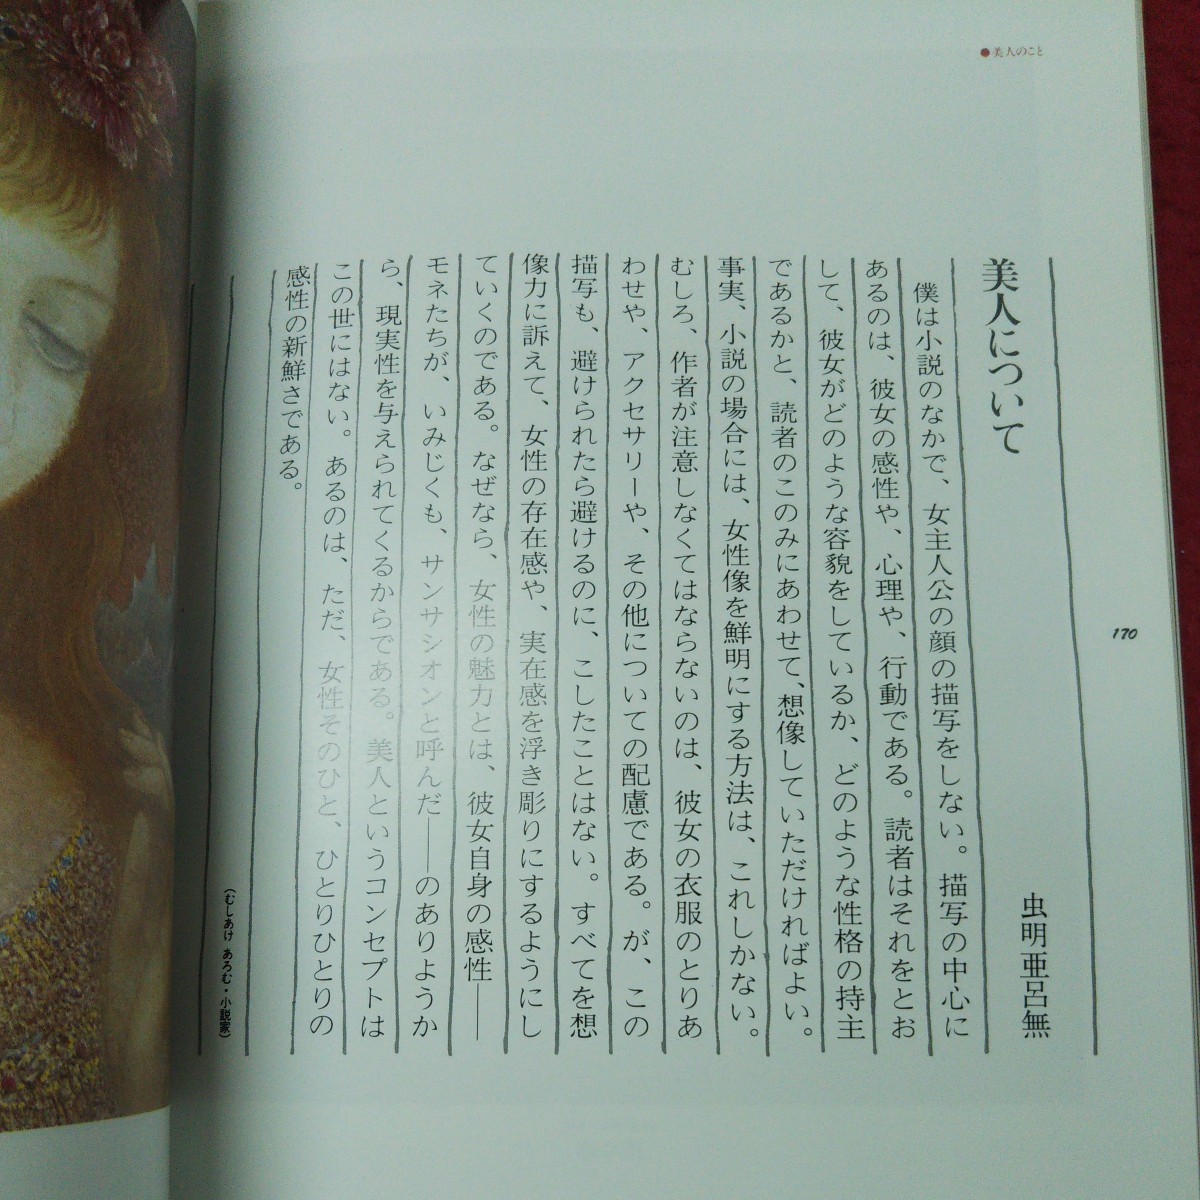 ●美人のこと
美人について
虫明亜呂無
僕は小説のなかで、女主人公の顔の描写をしない。描写の中心に
あるのは、彼女の感性や、心理や、行動である。読者はそれをとお
して、彼女がどのような容貌をしているか、どのような性格の持主
であるかと、読者のこのみにあわせて、想像していただければよい。
事実、小説の場合には、女性像を鮮明にする方法は、これしかない。
むしろ、作者が注意しなくてはならないのは、彼女の衣服のとりあ
わせや、アクセサリーや、その他についての配慮である。が、この
描写も、避けられたら避けるのに、こしたことはない。すべてを想
像力に訴えて、女性の存在感や、実在感を浮き彫りにするようにし
ていくのである。なぜなら、女性の魅力とは、彼女自身の感性——
モネたちが、いみじくも、サンサシオンと呼んだ——のありようか
ら、現実性を与えられてくるからである。美人というコンセプトは
この世にはない。あるのは、ただ、女性そのひと、ひとりひとりの
感性の新鮮さである。
（むしあけ あろむ・小説家）
170